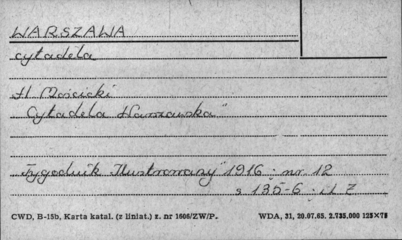 WARSZAWA
cytadela
H. Mościcki
"Cytadela Warszawska"
"Tygodnik Ilustrowany" 1916 nr 12
s 135-6
CWD, B-15b, Karta katal. (z liniat.) z. nr 1606/ZW/P. WDA, 31, 20.07.65. 2.735.000 125×75